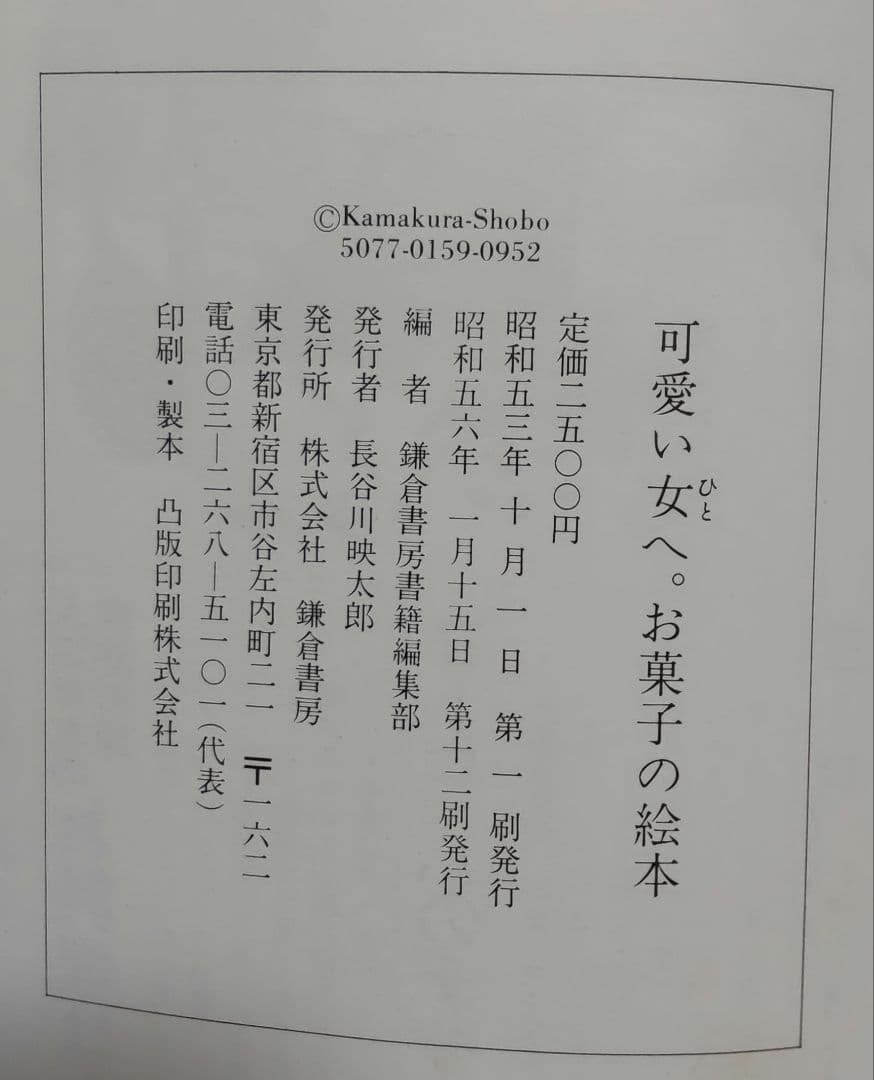 可愛い女へ。お菓子の絵本
ひと
定価二五〇〇円
昭和五三年 十 月 一 日 第 一 刷発行
昭和五六年 一月十五日 第十二刷発行
編 者 鎌倉書房書籍編集部
発行者 長谷川映太郎
発行所 株式会社 鎌倉書房
東京都新宿区市谷左内町二一 〒一六二
電話〇三―二六八―五一〇一(代表)
印刷・製本 凸版印刷株式会社
©Kamakura-Shobo
5077-0159-0952